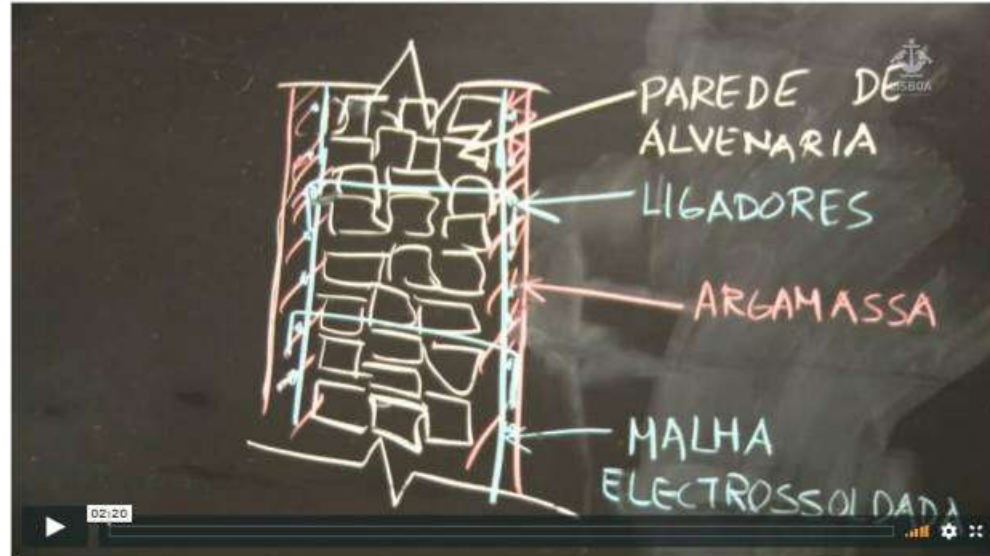 LISBOA
PAREDE DE
ALVENARIA
LIGADORES
ARGAMASSA
MALHA
ELECTROSSOLDADA
02:20